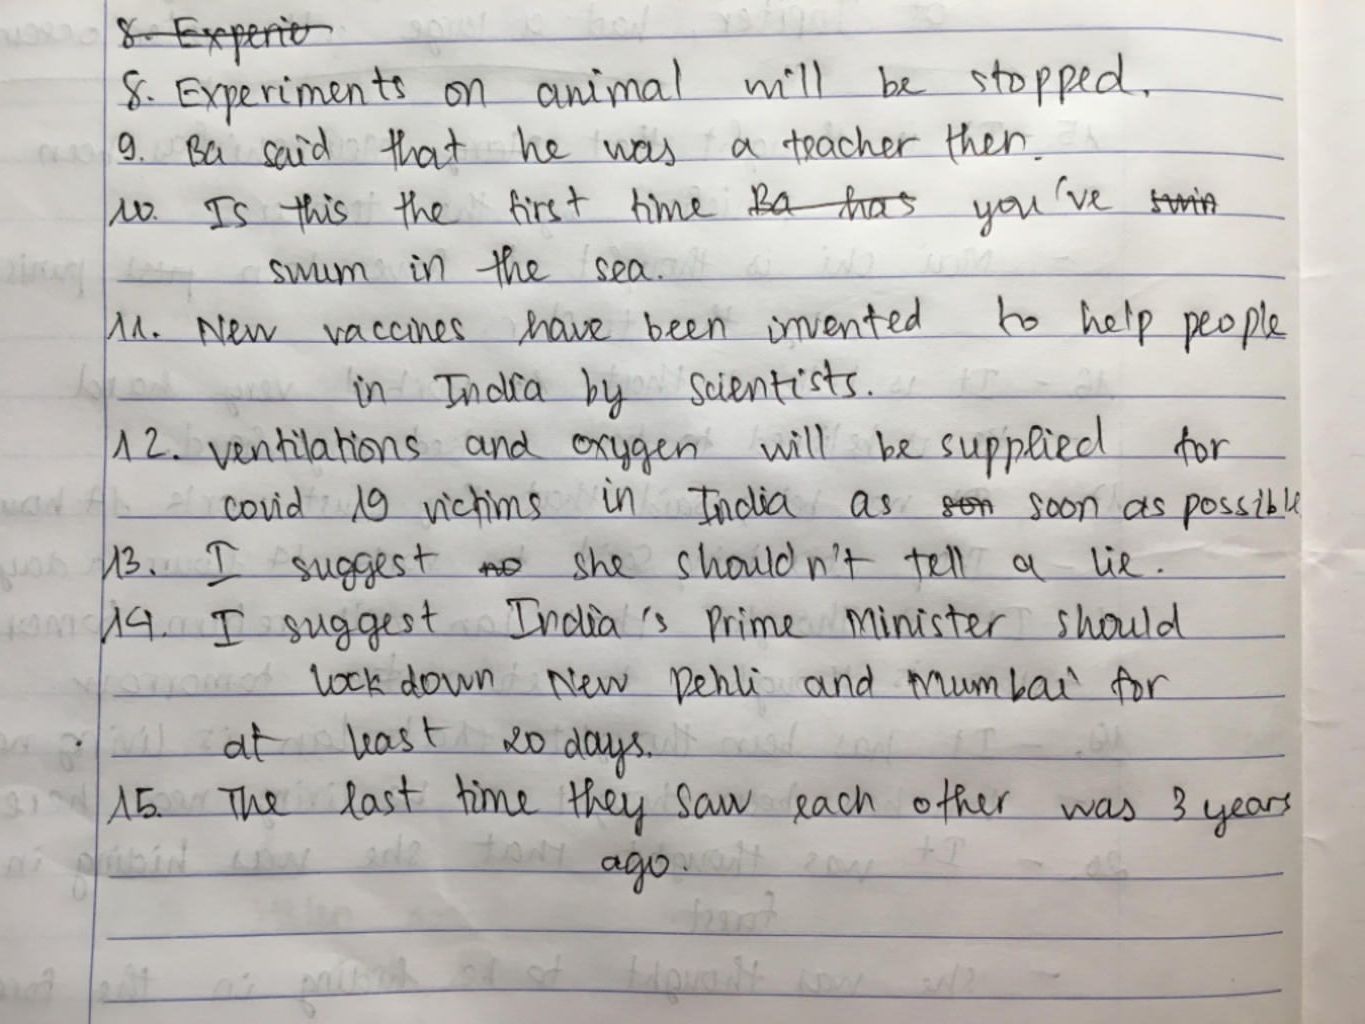 8. Experie
8. Experiments on animal will be stopped.
9. Ba said that he was a teacher then.
10. Is this the first time Ba has you've swin
swum in the sea.
11. New vaccines have been invented to help people
in India by scientists.
12. ventilations and oxygen will be supplied for
covid 19 victims in India as son soon as possible
13. I suggest no she shouldn't tell a lie.
14. I suggest India's Prime Minister should
lock down New Dehli and Mumbai for
at least 20 days.
15. The last time they saw each other was 3 years
ago.